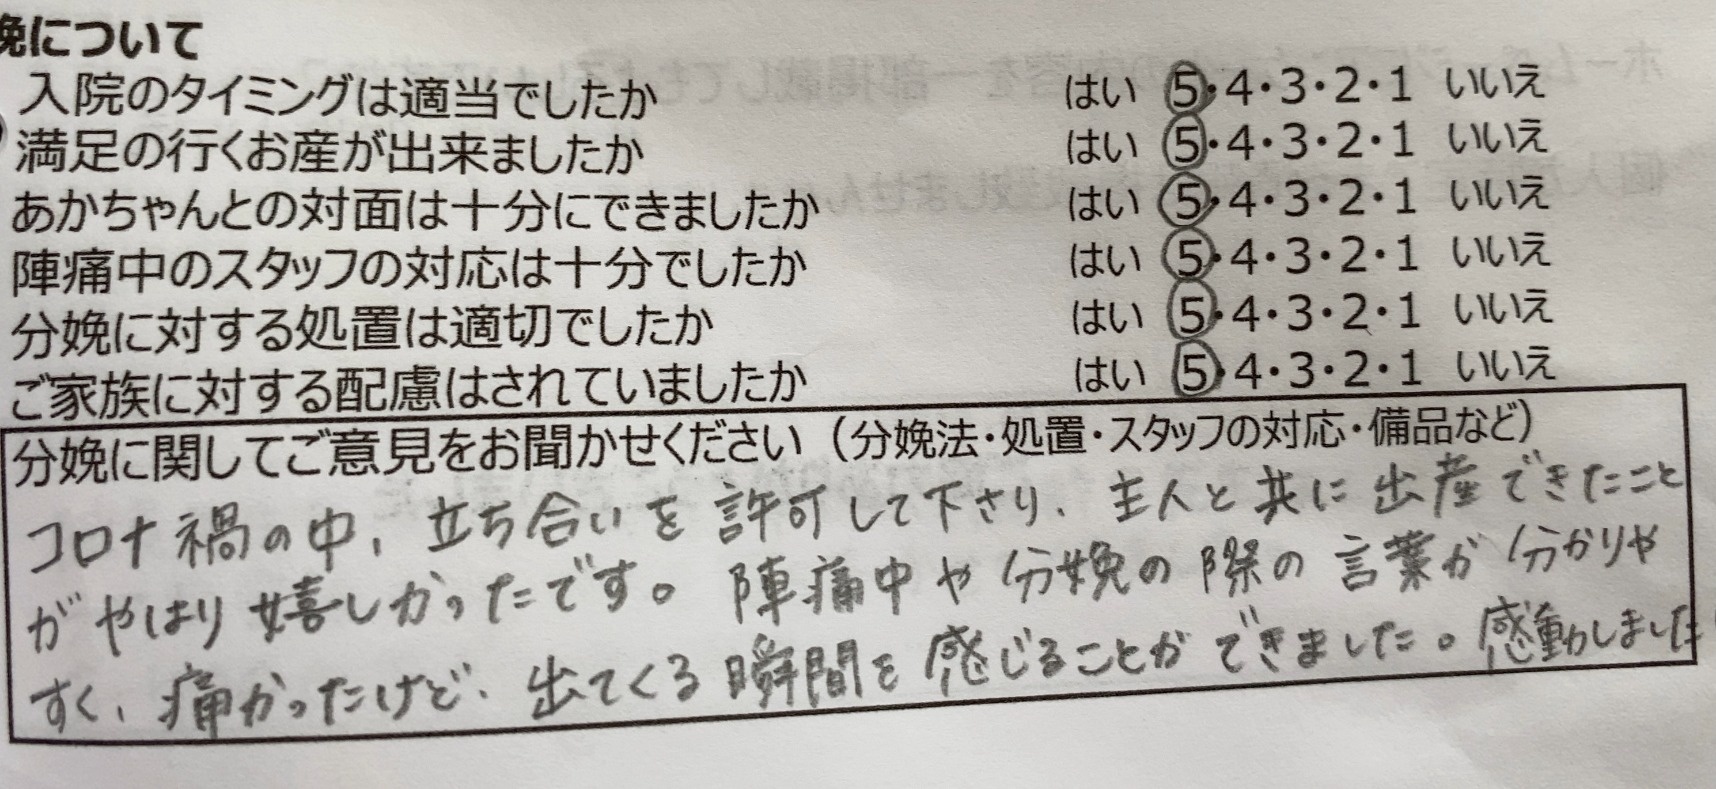 娩について
入院のタイミングは適当でしたか はい 5・4・3・2・1 いいえ
満足の行くお産が出来ましたか はい 5・4・3・2・1 いいえ
あかちゃんとの対面は十分にできましたか はい 5・4・3・2・1 いいえ
陣痛中のスタッフの対応は十分でしたか はい 5・4・3・2・1 いいえ
分娩に対する処置は適切でしたか はい 5・4・3・2・1 いいえ
ご家族に対する配慮はされていましたか はい 5・4・3・2・1 いいえ
分娩に関してご意見をお聞かせください（分娩法・処置・スタッフの対応・備品など）
コロナ禍の中、立ち合いを許可して下さり、主人と共に出産できたこと
がやはり嬉しかったです。陣痛中や分娩の際の言葉が分かりや
すく、痛かったけど、出てくる瞬間を感じることができました。感動しました